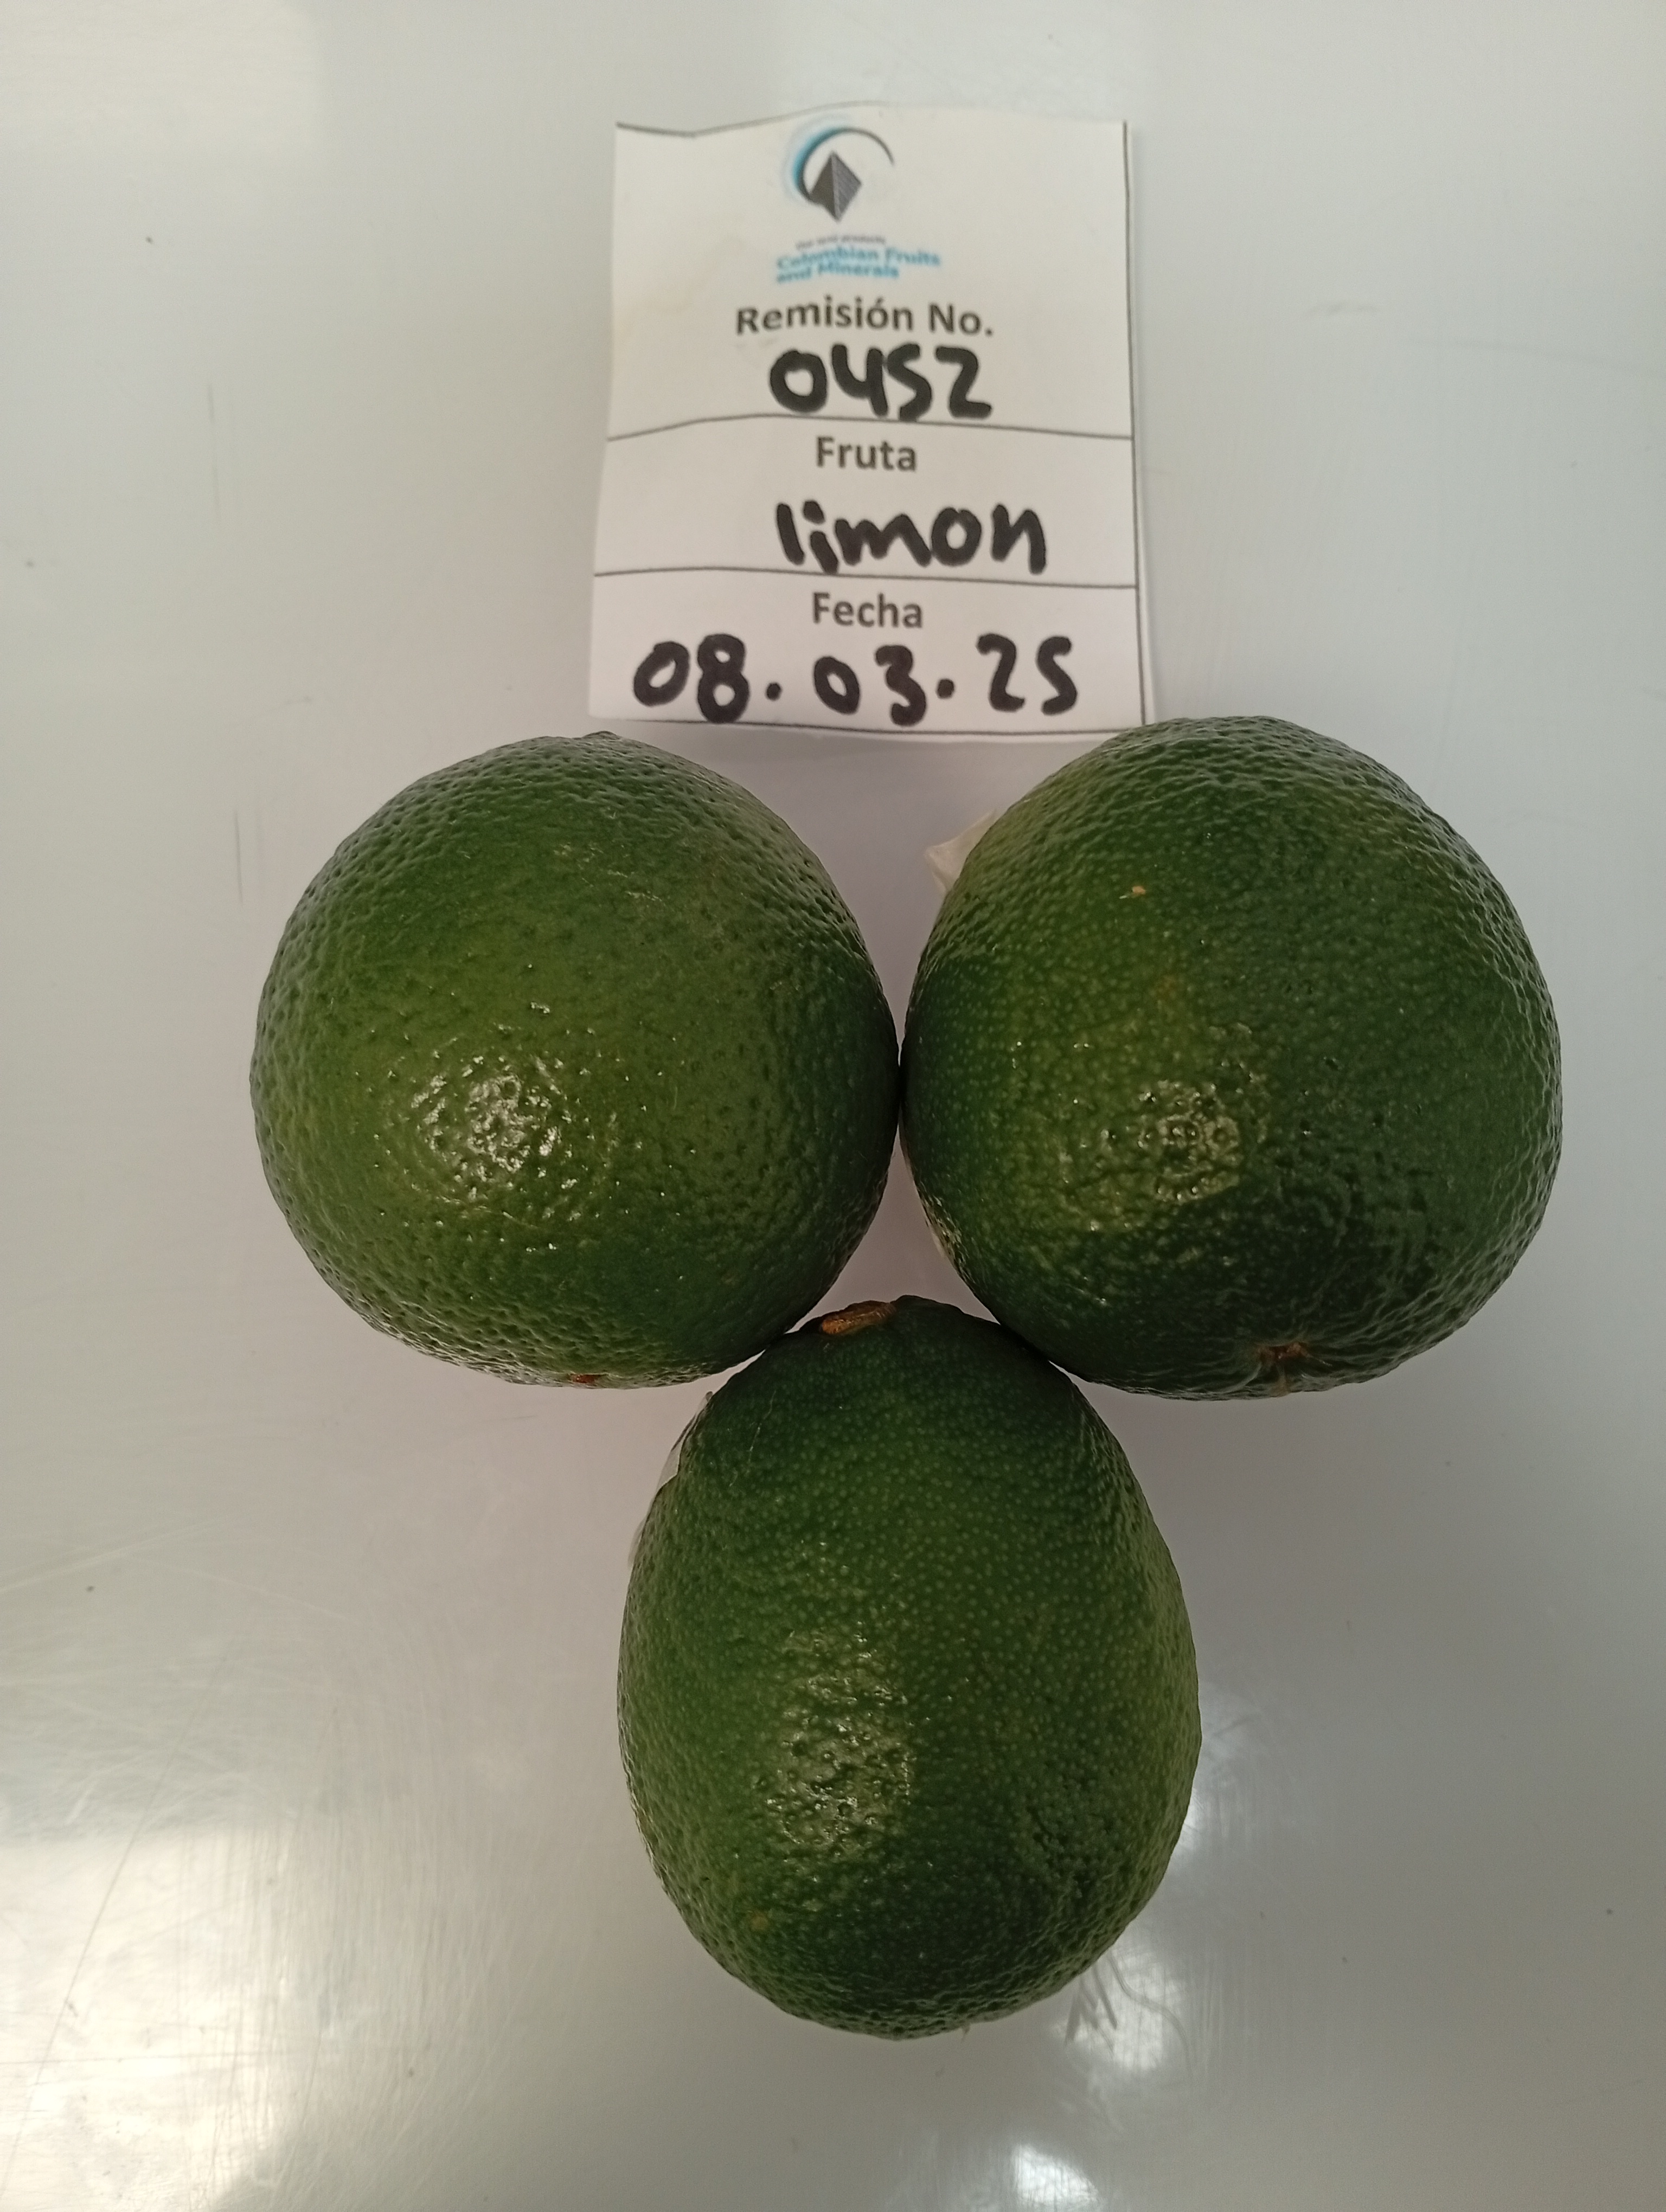 Colombian Fruits
and Minerals
Remisión No.
0452
Fruta
limon
Fecha
08.03.25